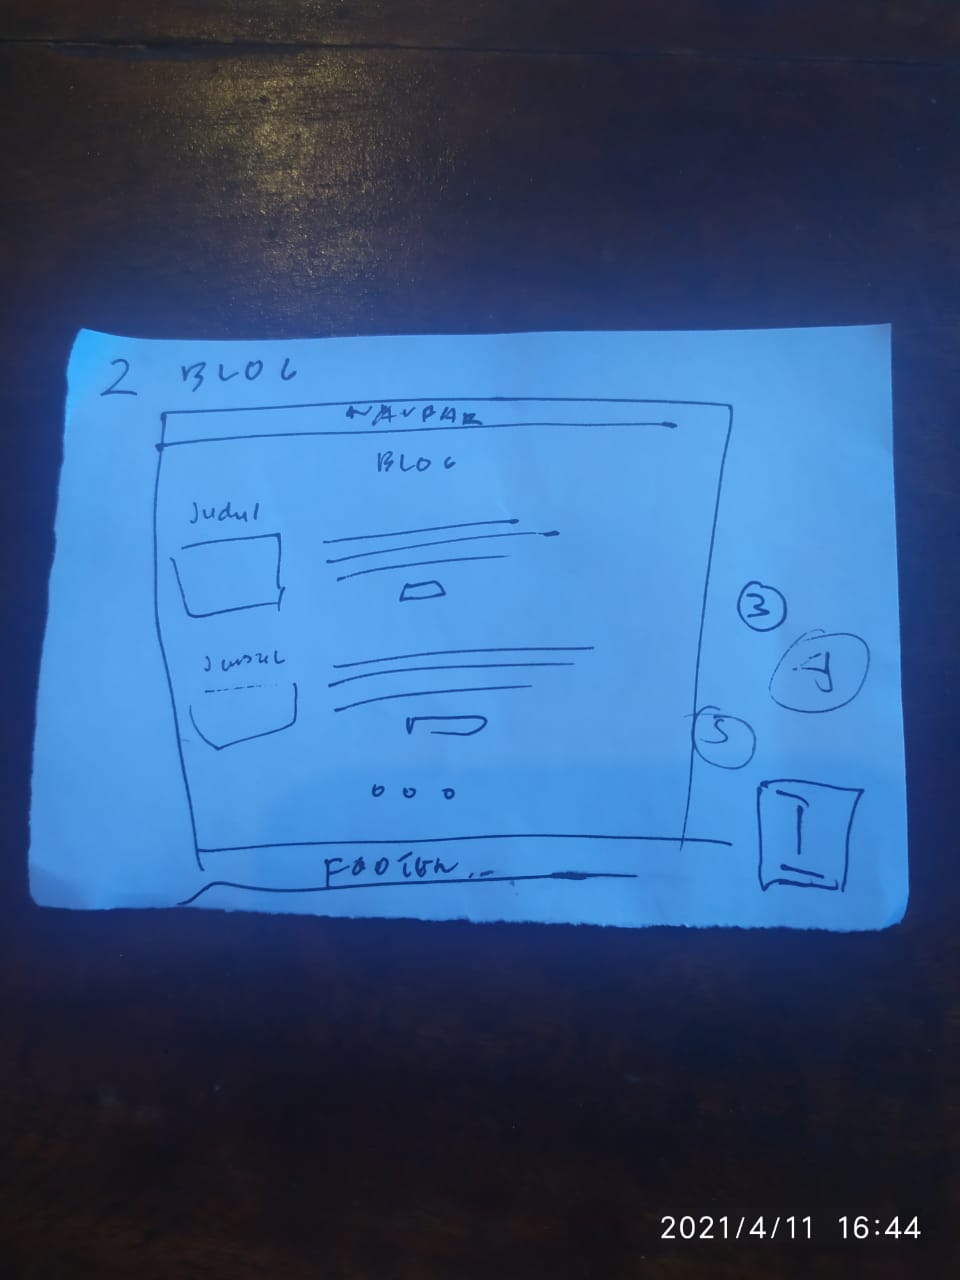 2 BLOG
NAVBAR
BLOG
Judul
3
Judul
5
FOOTER...
2021/4/11 16:44